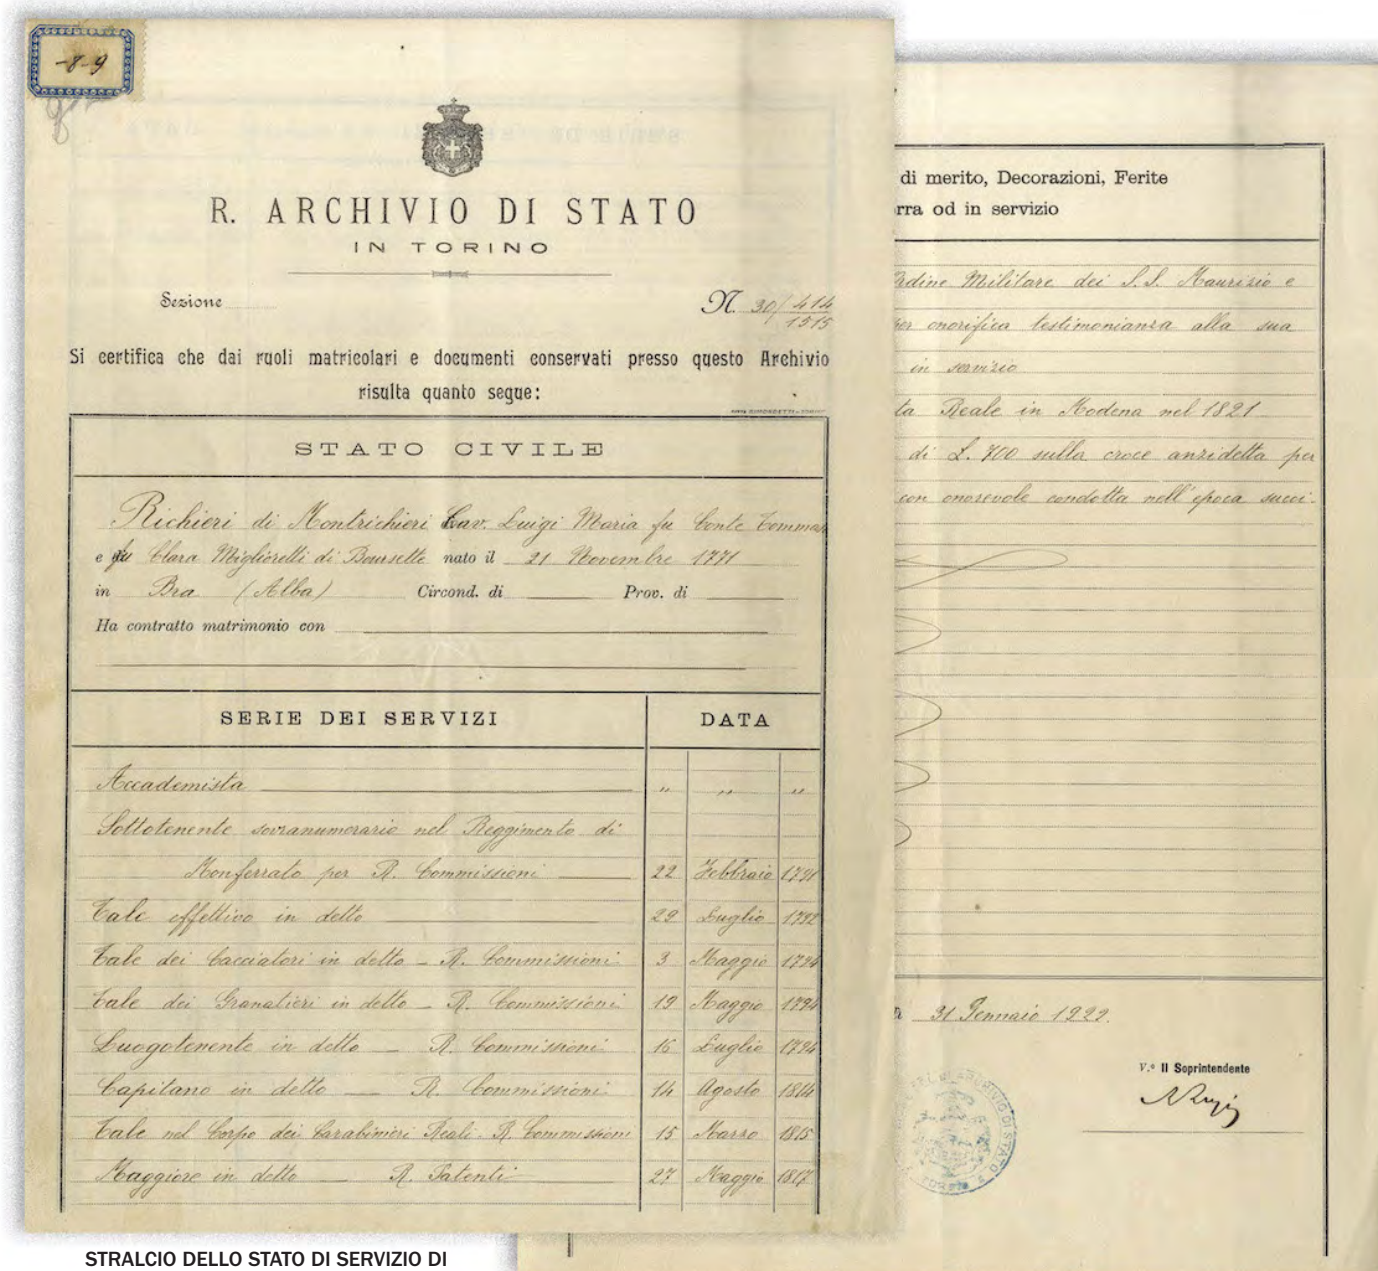 -8-9
R. ARCHIVIO DI STATO
IN TORINO
Sezione
N. 30/414
1515
Si certifica che dai ruoli matricolari e documenti conservati presso questo Archivio
risulta quanto segue:
STATO CIVILE
Richieri di Montrichieri Cav. Luigi Maria fu Conte Tommaso
e fu Clara Miglioretti di Boursette nato il 21 Novembre 1771
in Bra (Alba) Circond. di Prov. di
Ha contratto matrimonio con
SERIE DEI SERVIZI DATA
Accademista " " "
Sottotenente sovranumerario nel Reggimento di
Monferrato per R. Commissioni 22 Febbraio 1791
Tale effettivo in detto 29 Luglio 1792
Tale dei Cacciatori in detto - R. Commissioni 3 Maggio 1794
Tale dei Granatieri in detto - R. Commissioni 19 Maggio 1794
Luogotenente in detto - R. Commissioni 16 Luglio 1794
Capitano in detto - R. Commissioni 14 Agosto 1814
Tale nel Corpo dei Carabinieri Reali. R. Commissioni 15 Marzo 1815
Maggiore in detto - R. Patenti 27 Maggio 1817
di merito, Decorazioni, Ferite
rra od in servizio
rdine Militare dei S.S. Maurizio e
per onorifica testimonianza alla sua
in servizio
ta Reale in Modena nel 1821
di L. 700 sulla croce anzidetta per
con onorevole condotta nell'epoca succi-
31 Gennaio 1922.
V.° Il Soprintendente
STRALCIO DELLO STATO DI SERVIZIO DI